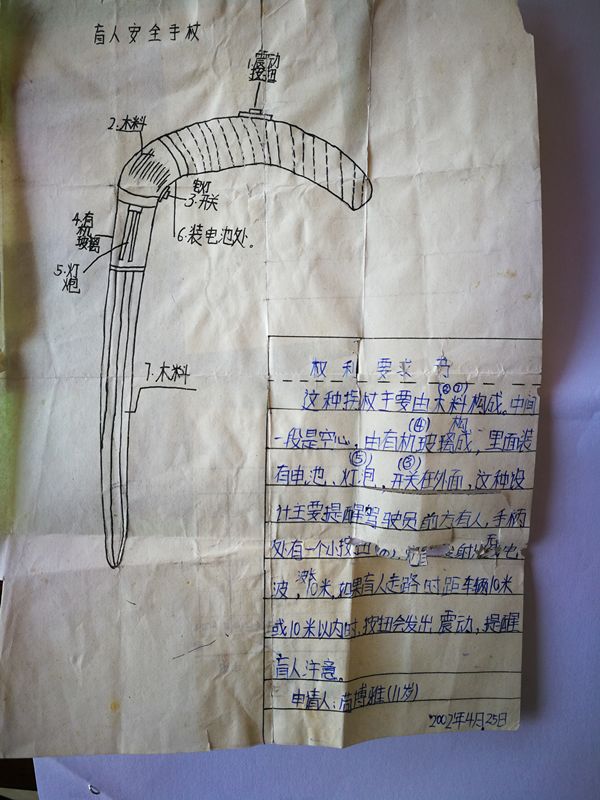 盲人安全手杖
1.震动
按钮
2.木料
3.开关
4.有
机
玻璃
5.灯
炮
6.装电池处。
7.木料
权利要求书
(②⑦)
这种拐杖主要由木料构成。中间
(④) 构
一段是空心,由有机玻璃成,里面装
(⑤) (③)
有电池、灯泡、开关在外面,这种设
计主要提醒驾驶员前方有人,手柄
处有一个小按 射 电
波, 10米,如果盲人走路时距车辆10米
或10米以内时,按钮会发出震动,提醒
盲人注意。
申请人:苗博雅(11岁)
2002年4月25日